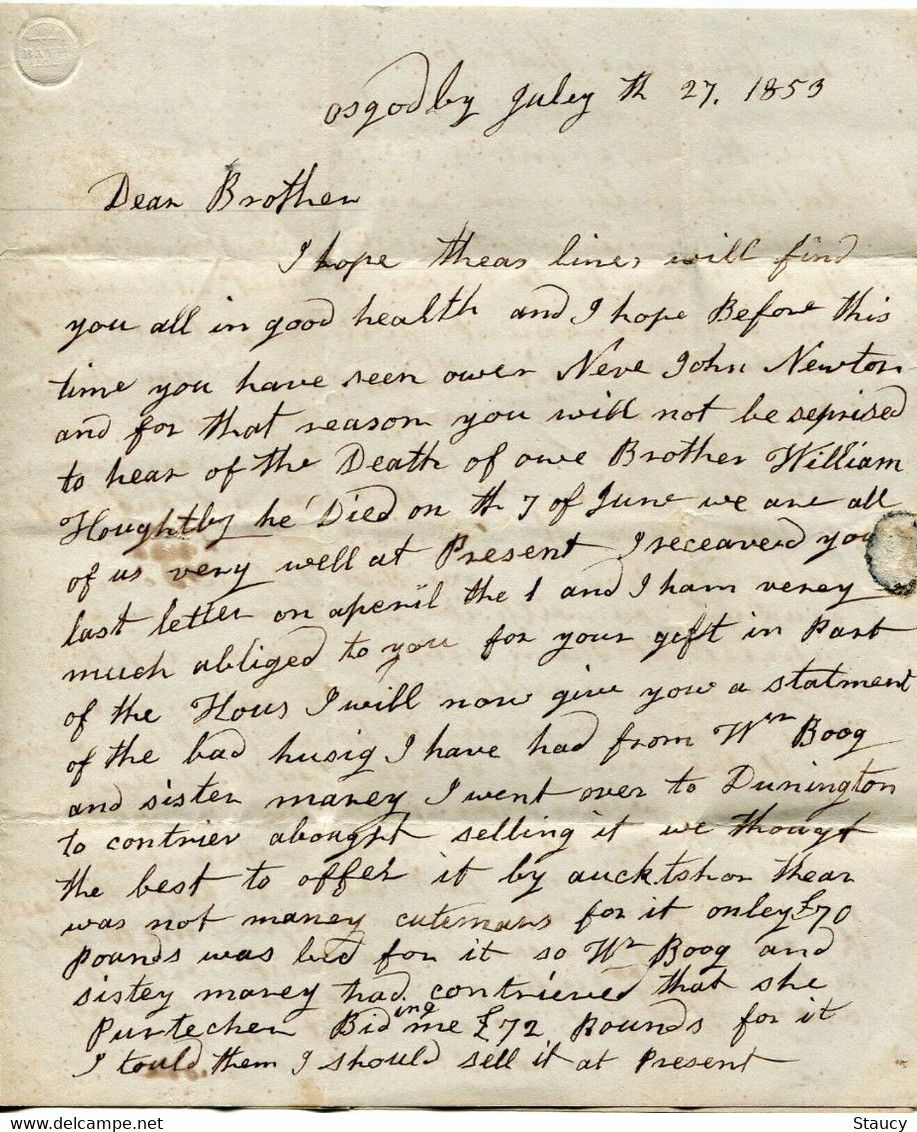 BATH
osgodby Juley th 27. 1853
Dear Brother
I hope theas lines will find
you all in good health and I hope Before this
time you have seen ower Neve John Newton
and for that reason you will not be seprised
to hear of the Death of owe Brother William
Houghtby he Died on th 7 of June we are all
of us very well at Present I receaved you
last letter on aperil the 1 and I ham verey
much abliged to you for your geft in Part
of the Hous I will now give yow a statment
of the bad husig I have had from Wm Boog
and sister marey I went over to Dunington
to contriev abought selling it we thougt
the best to offer it by aucktshon thear
was not maney cutemars for it onley £70
pounds was bid for it so Wm Boog and
sistey marey had contrieved that she
Bid ing me £72 Pounds for it
I tould them I should sell it at Present
Staucy